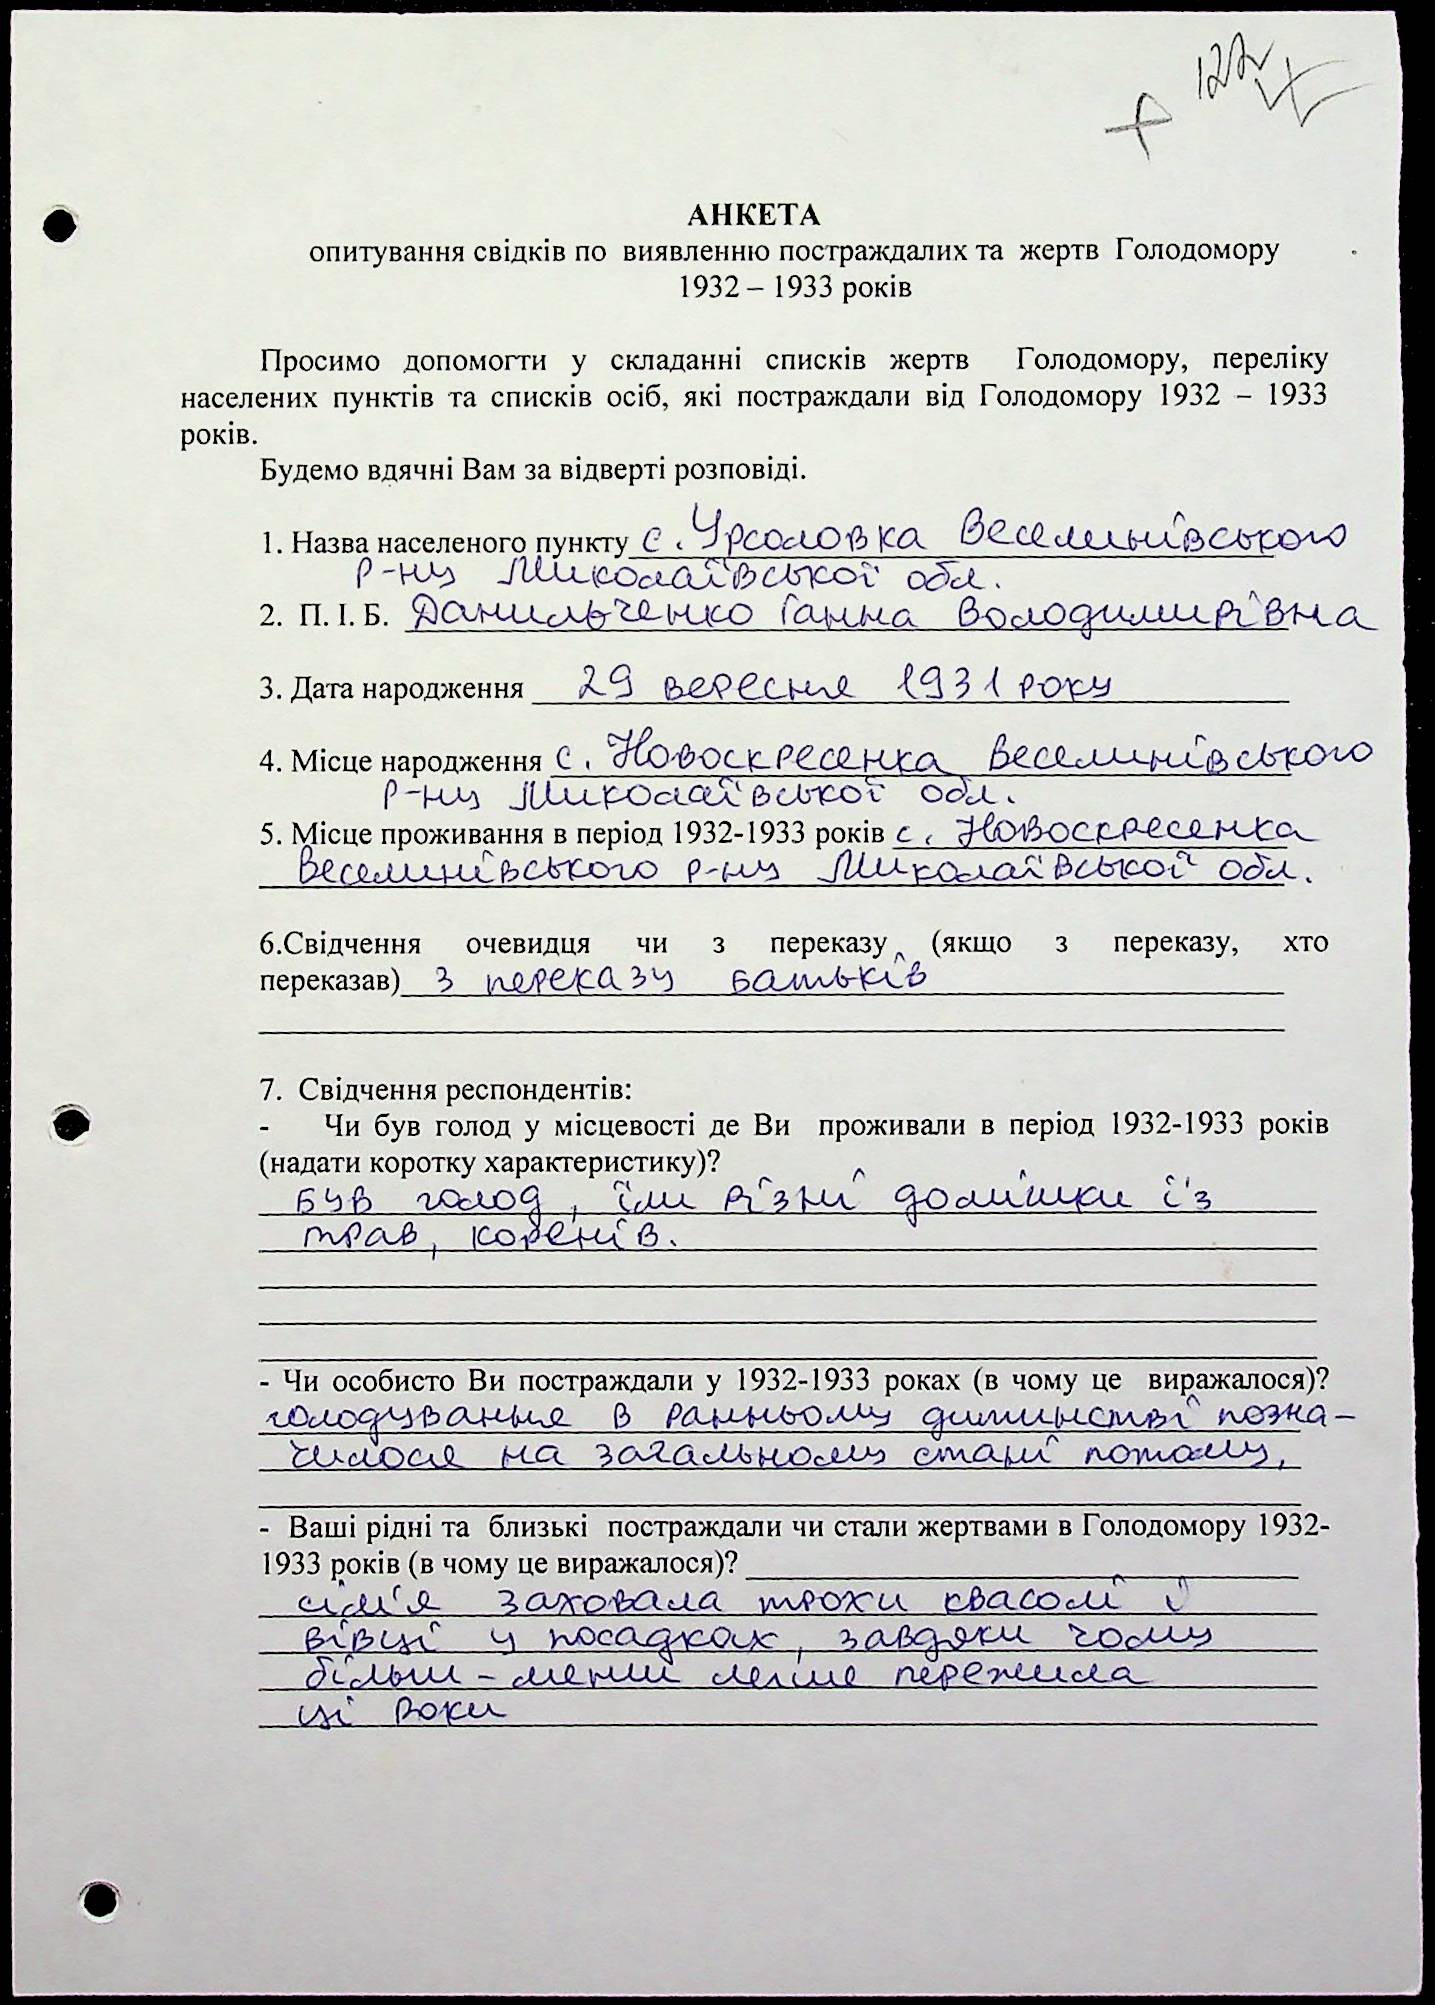 122
АНКЕТА
опитування свідків по виявленню постраждалих та жертв Голодомору
1932 – 1933 років
Просимо допомогти у складанні списків жертв Голодомору, переліку
населених пунктів та списків осіб, які постраждали від Голодомору 1932 – 1933
років.
Будемо вдячні Вам за відверті розповіді.
1. Назва населеного пункту с. Урсоловка Веселинівського
р-ну Миколаївської обл.
2. П. І. Б. Данильченко Ганна Володимирівна
3. Дата народження 29 вересня 1931 року
4. Місце народження с. Новоскресенка Веселинівського
р-ну Миколаївської обл.
5. Місце проживання в період 1932-1933 років с. Новоскресенка
Веселинівського р-ну Миколаївської обл.
6.Свідчення очевидця чи з переказу (якщо з переказу, хто
переказав) з переказу батьків
7. Свідчення респондентів:
- Чи був голод у місцевості де Ви проживали в період 1932-1933 років
(надати коротку характеристику)?
був голод, їли різні домішки із
трав, коренів.
- Чи особисто Ви постраждали у 1932-1933 роках (в чому це виражалося)?
голодування в ранньому дитинстві позна-
чилося на загальному стані потому,
- Ваші рідні та близькі постраждали чи стали жертвами в Голодомору 1932-
1933 років (в чому це виражалося)?
сім'я заховала трохи квасолі і
вівці у посадках, завдяки чому
більш-менш легше пережила
ці роки